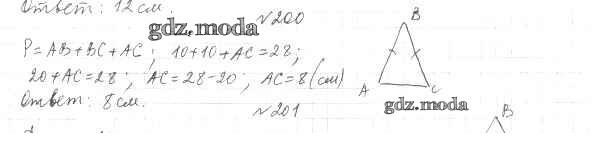 Ответ: 12 см.
№200
gdz.moda
B
P=AB+BC+AC; 10+10+AC=28;
20+AC=28; AC=28-20; AC=8(см)
A
C
Ответ: 8 см.
gdz.moda
№201
B